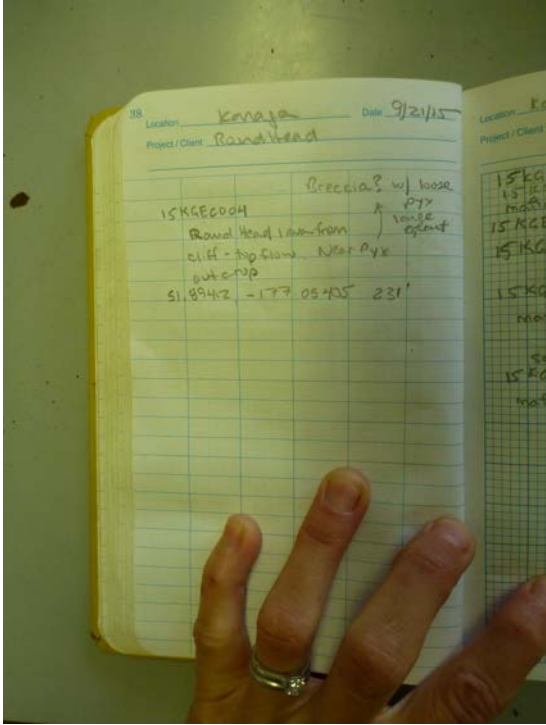 38 Location Kanaga Date 9/21/15
Project / Client Round Head
Breccia? w/ loose
pyx
15KGEC004
Round Head lava from
cliff - top flow. Near Pyx
outcrop
51.89412 -177.05405 231'
Location
Project / Client